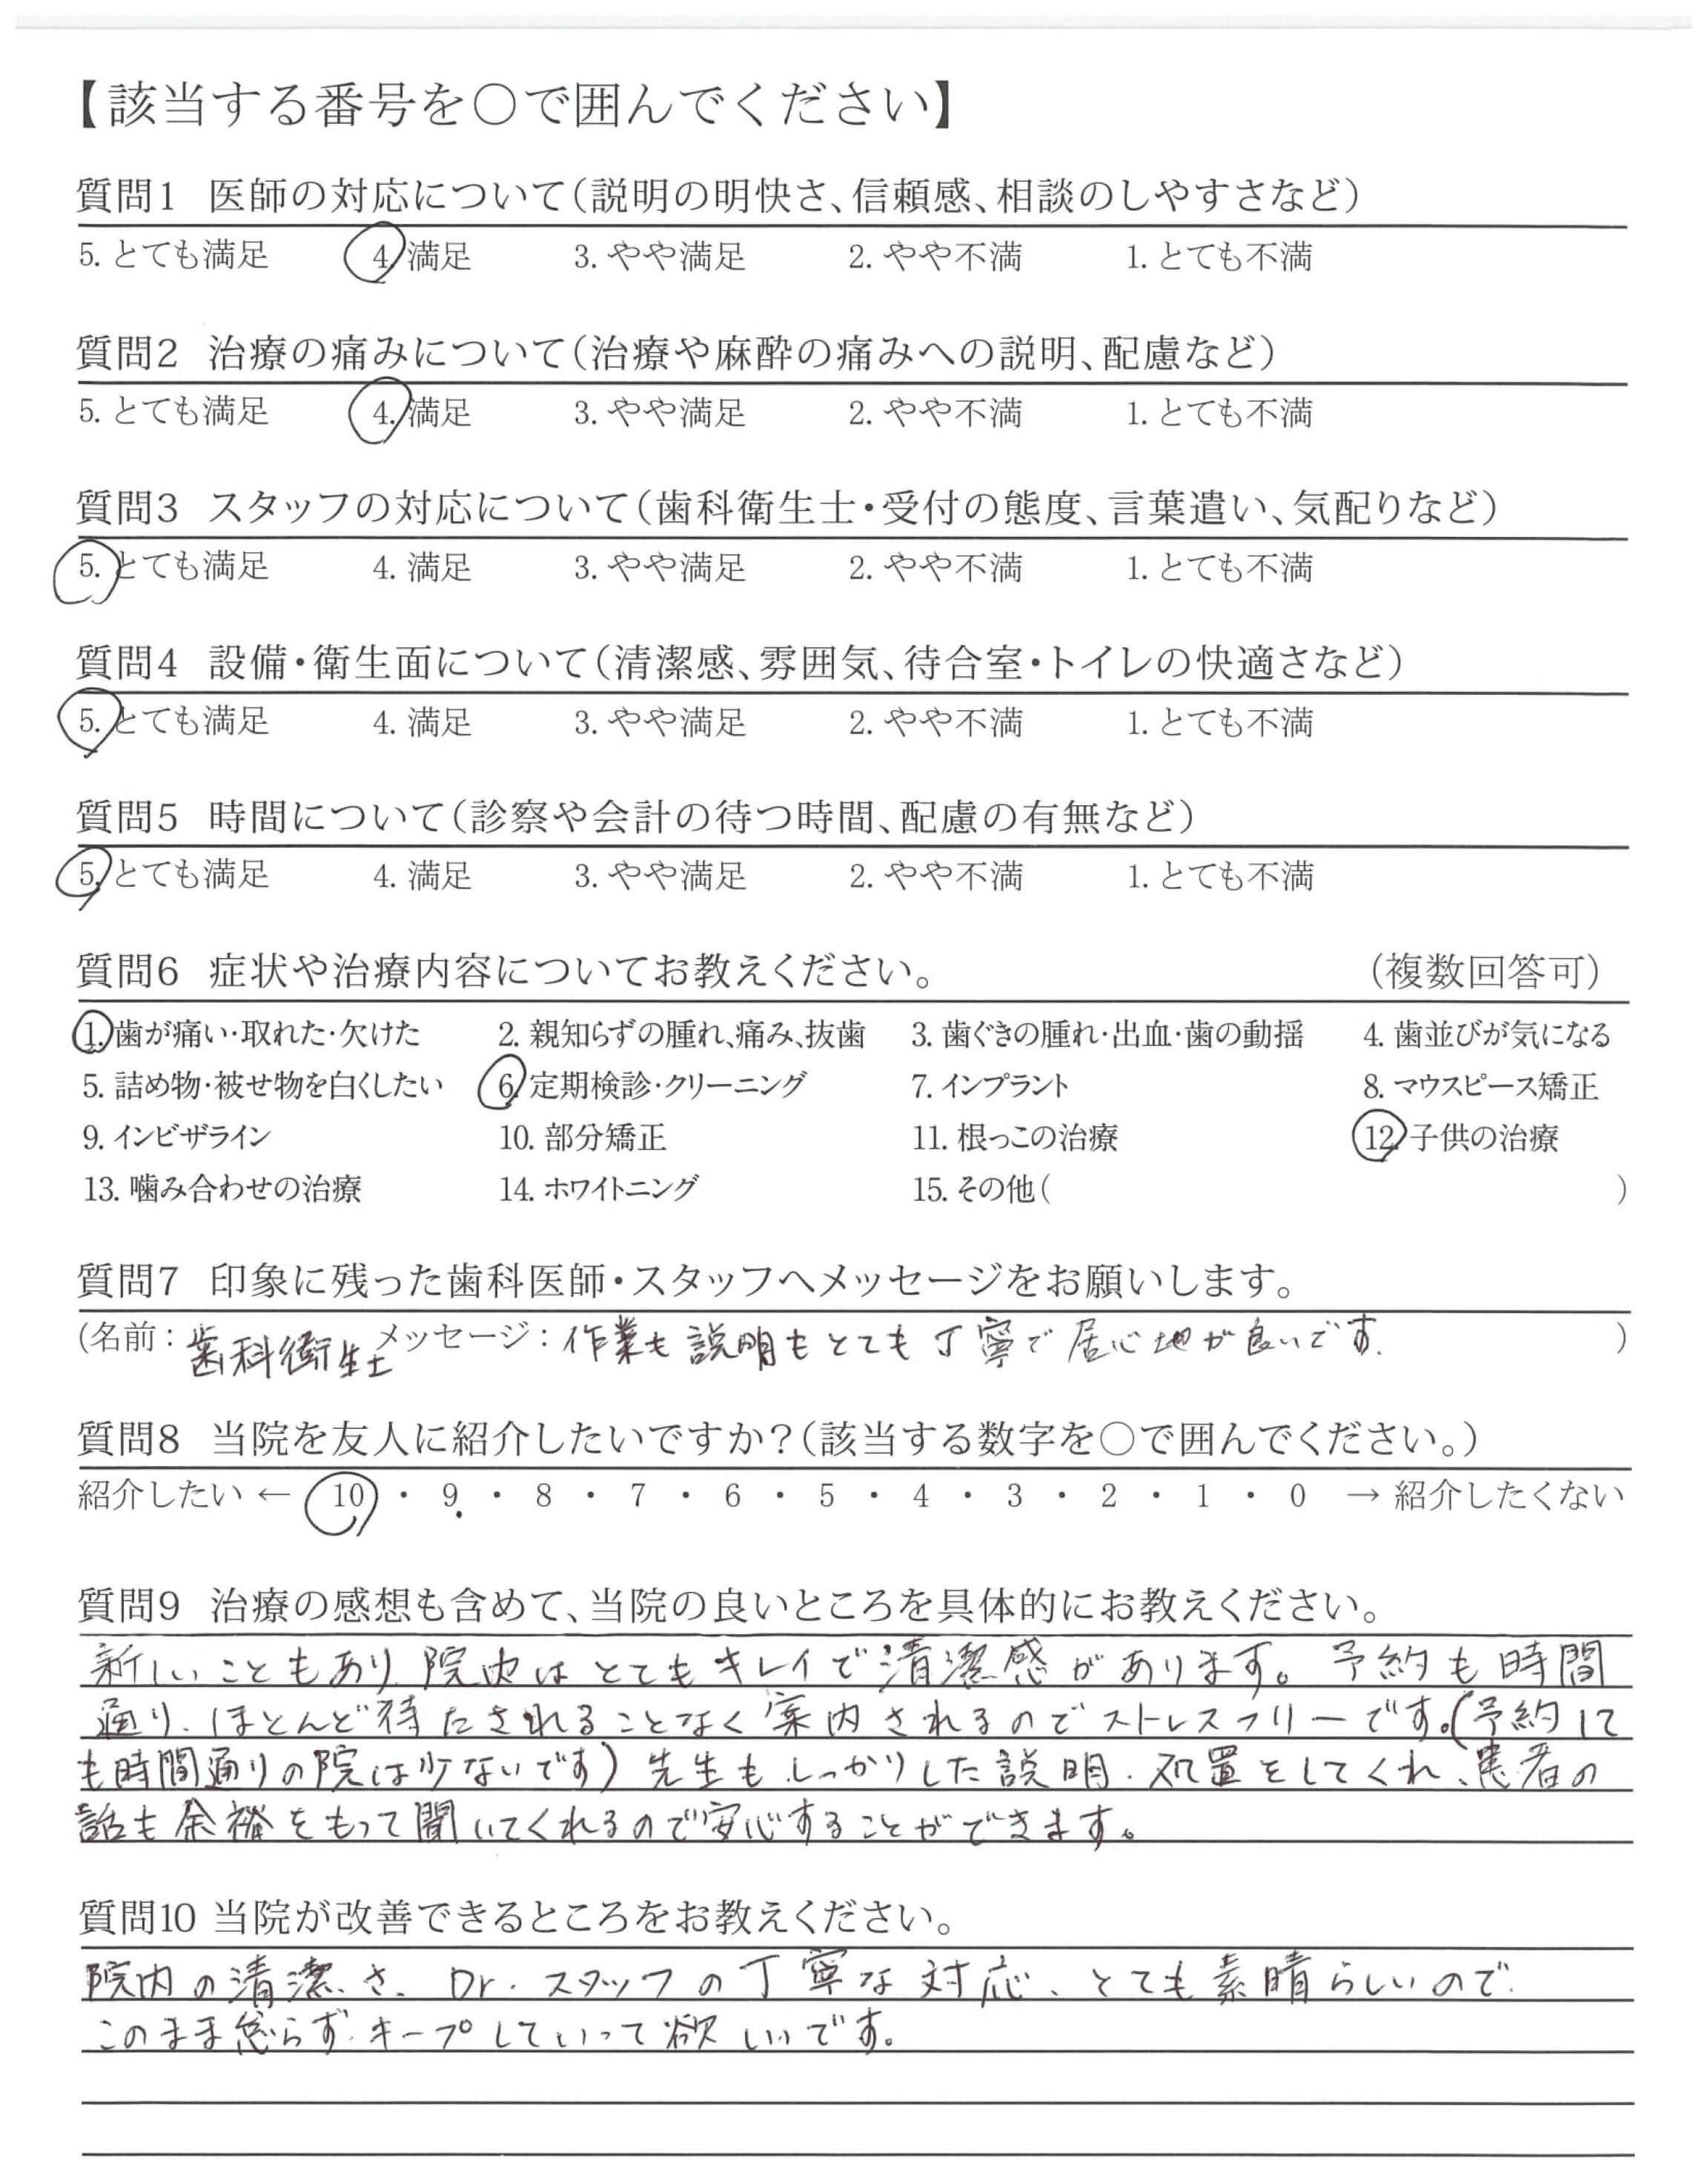 【該当する番号を〇で囲んでください】
質問1 医師の対応について(説明の明快さ、信頼感、相談のしやすさなど)
5. とても満足 4. 満足 3. やや満足 2. やや不満 1. とても不満
質問2 治療の痛みについて(治療や麻酔の痛みへの説明、配慮など)
5. とても満足 4. 満足 3. やや満足 2. やや不満 1. とても不満
質問3 スタッフの対応について(歯科衛生士・受付の態度、言葉遣い、気配りなど)
5. とても満足 4. 満足 3. やや満足 2. やや不満 1. とても不満
質問4 設備・衛生面について(清潔感、雰囲気、待合室・トイレの快適さなど)
5. とても満足 4. 満足 3. やや満足 2. やや不満 1. とても不満
質問5 時間について(診察や会計の待つ時間、配慮の有無など)
5. とても満足 4. 満足 3. やや満足 2. やや不満 1. とても不満
質問6 症状や治療内容についてお教えください。 (複数回答可)
1. 歯が痛い・取れた・欠けた 2. 親知らずの腫れ、痛み、抜歯 3. 歯ぐきの腫れ・出血・歯の動揺 4. 歯並びが気になる
5. 詰め物・被せ物を白くしたい 6. 定期検診・クリーニング 7. インプラント 8. マウスピース矯正
9. インビザライン 10. 部分矯正 11. 根っこの治療 12. 子供の治療
13. 噛み合わせの治療 14. ホワイトニング 15. その他( )
質問7 印象に残った歯科医師・スタッフへメッセージをお願いします。
(名前：歯科衛生士 メッセージ：作業も説明もとても丁寧で居心地が良いです. )
質問8 当院を友人に紹介したいですか？(該当する数字を〇で囲んでください。)
紹介したい ← 10 ・ 9 ・ 8 ・ 7 ・ 6 ・ 5 ・ 4 ・ 3 ・ 2 ・ 1 ・ 0 → 紹介したくない
質問9 治療の感想も含めて、当院の良いところを具体的にお教えください。
新しいこともあり、院内はとてもキレイで清潔感があります。予約も時間
通り、ほとんど待たされることなく案内されるのでストレスフリーです。(予約して
も時間通りの院は少ないです)先生もしっかりした説明、処置をしてくれ、患者の
話も余裕をもって聞いてくれるので安心することができます。
質問10 当院が改善できるところをお教えください。
院内の清潔さ、Dr.スタッフの丁寧な対応、とても素晴らしいので
このまま怠らず、キープしていって欲しいです。